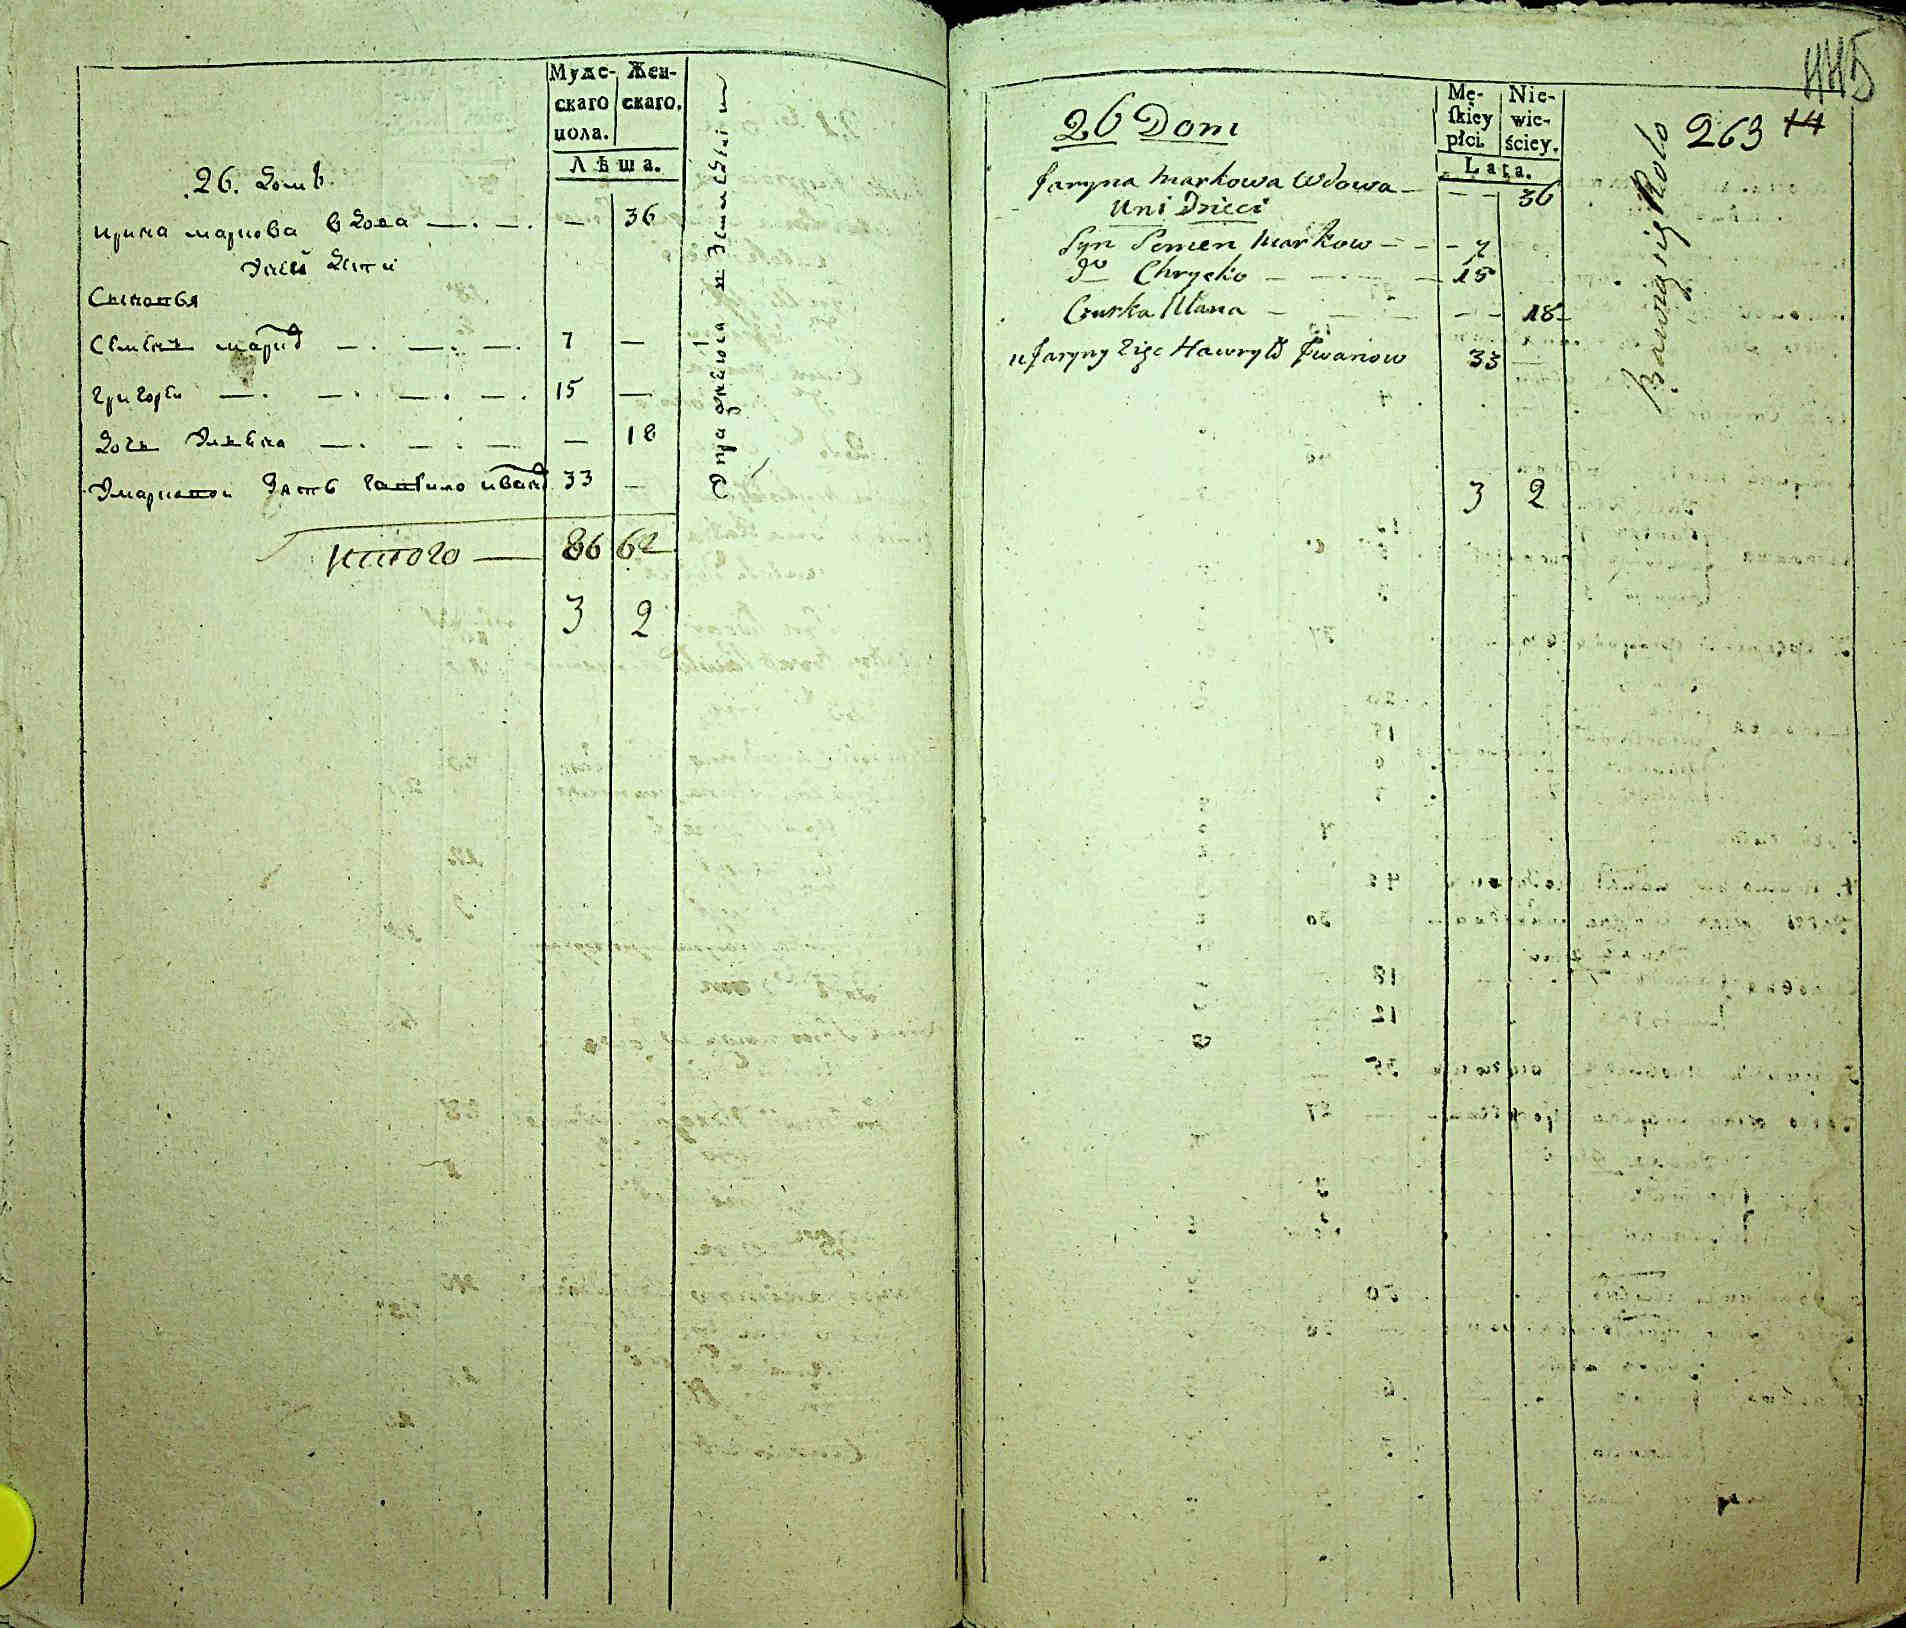 Мужескаго пола.
Женскаго.
Лѣта.
26. домъ
ирина маркова вдова — 36
унеи дети
Сыновья
Семенъ марков — 7 —
григореи — 15 —
дочь Ульяна — 18
Умариной зять гаврило иванов 33 —
Итого — 86 62
3 2
Упражняются в Земледѣлїи
26 Dom
Męskiey płci.
Niewieściey.
Lata.
Jaryna Markowa Wdowa — 36
U ni Dzieci
Syn Semen Markow — 7
do Chryćko — 15
Curka Ulana — 18
u Jaryny Zięć Hawryło Jwanow 33 —
3 2
Bawią się Rolą
263 14
115